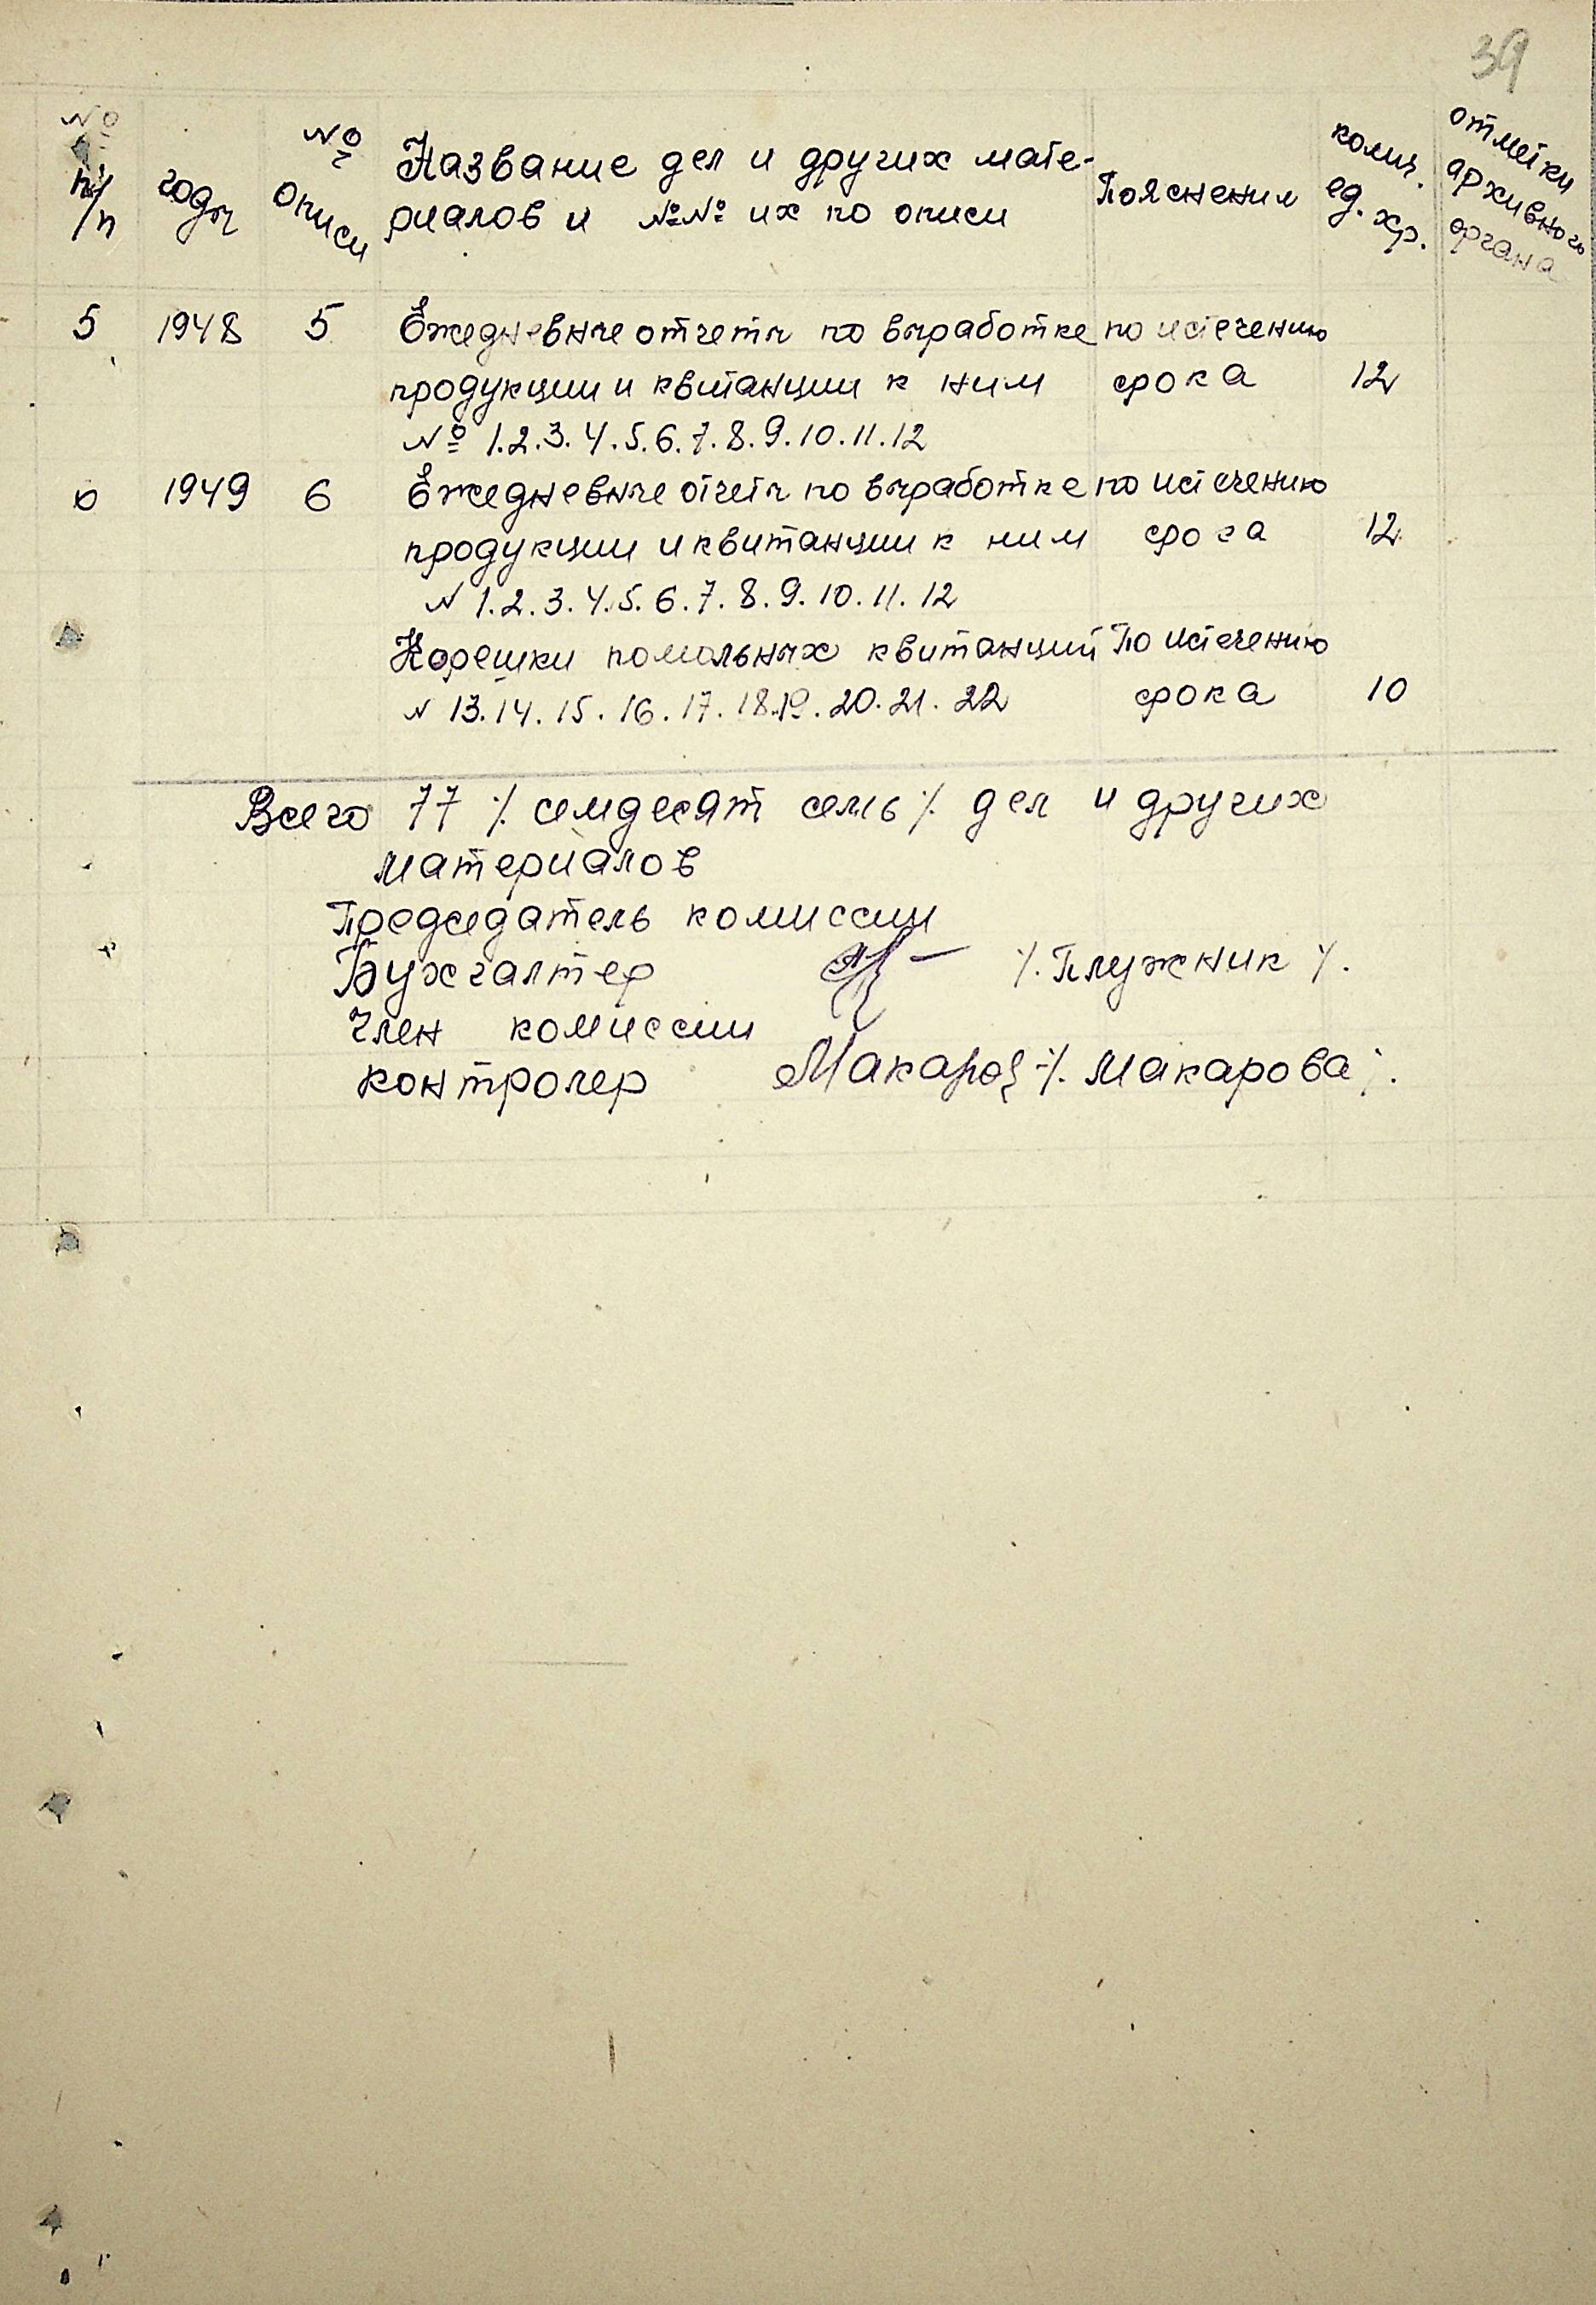 39
№ п/п годы № описи Название дел и других мате- Пояснения колич. ед. хр. отметки архивного органа
риалов и №№ их по описи
5 1948 5 Ежедневные отчеты по выработке по истечению
продукции и квитанции к ним срока 12
№ 1.2.3.4.5.6.7.8.9.10.11.12
6 1949 6 Ежедневные отчеты по выработке по истечению
продукции и квитанции к ним срока 12
N 1.2.3.4.5.6.7.8.9.10.11.12
Корешки помольных квитанций По истечению
N 13.14.15.16.17.18.19.20.21.22 срока 10
Всего 77 ·/· семдесят семь ·/· дел и других
материалов
Председатель комиссии
Бухгалтер ·/· Плужник ·/·
Член комиссии
контролер Макаров ·/· Макарова ·/·